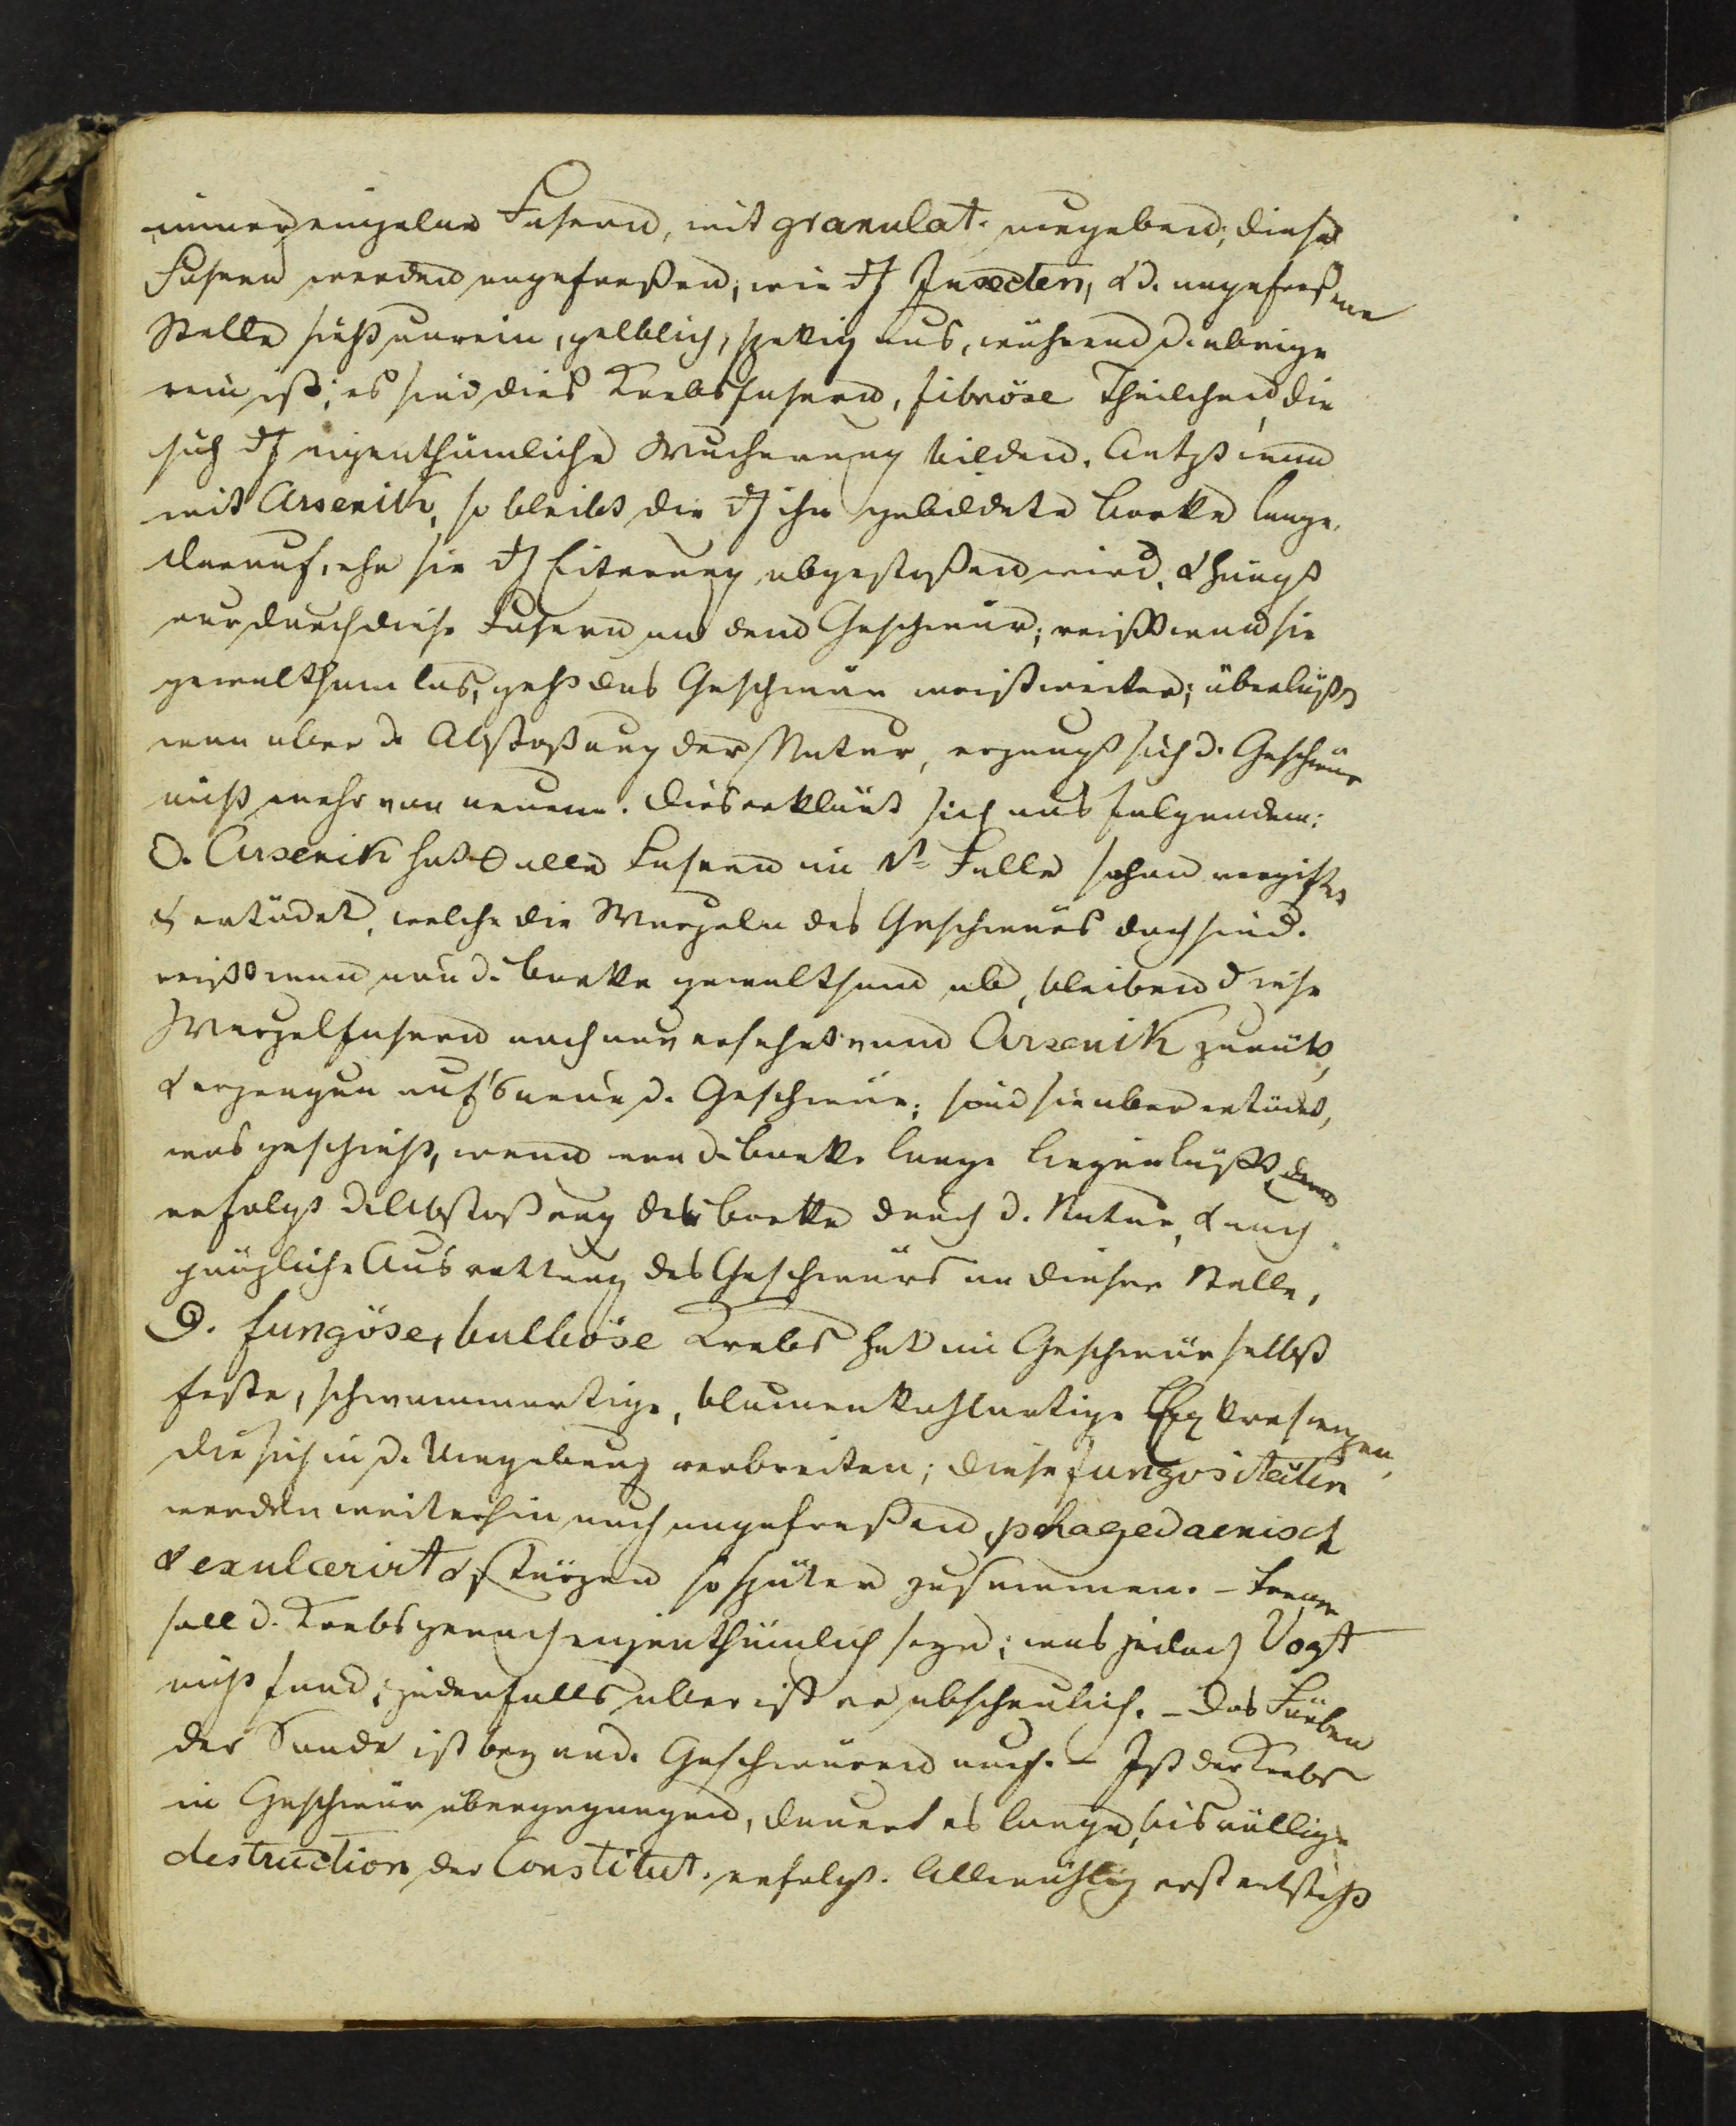 immer einzelne Fasern, mit granulat. umgeben; diese
Fasern werden angefreßen, wie dch Insecten, & d. angefreßene
Stelle sieht unrein, gelblich, spekig aus, während d. übrige
rein ist; es sind dies Krebsfasern, fibröse Theilchen, die
sich dch eigenthümliche Wucherung bilden. Aetzt man
mit Arsenik, so bleibt die dch ihn gebildete Borke lange
darauf, ehe sie dch Eiterung abgestoßen wird, & hängt
nur durch diese Fasern an dem Geschwür; reißt man sie
gewaltsam los, geht das Geschwür meist weiter; überläßt
man aber d. Abstoßung der Natur, erzeugt sich d. Geschwür
nicht mehr von neuem. Dies erklärt sich aus folgendem:
D. Arsenik hat alle Fasern im Falle schon vergiftet
& ertödet, welche die Wurzeln des Geschwürs doch sind.
reißt man nun d. Borke gewaltsam ab, bleiben diese
Wurzelfasern noch unversehrt vom Arsenik zurük,
& erzeugen auf's neue d. Geschwür; sind sie aber ertödet,
was geschieht, wenn man d. Borke lange liegen läßt, dann
erfolgt d. Abstoßung der Borke durch d. Natur, & auch
gänzliche Ausrottung des Geschwürs an dieser Stelle.
D. fungöse, bulböse Krebs hat im Geschwür selbst
feste, schwammartige, blumenkohlartige Exkreszenzen,
die sich in d. Umgebung verbreiten; diese fungositäten
werden weiterhin auch angefreßen, phagedaenisch
& exulcerirt & stürzen so später zusammen. – Ferner
soll d. Krebsgeruch eigenthümlich seyn; was jedoch Vogt
nicht fand; jedenfalls aber ist er abscheulich. – Das Färben
der Sonde ist bey and. Geschwüren auch. – Ist der Krebs
in Geschwür übergegangen, dauert es lange, bis völlige
destruction der Constitut. erfolgt. Allmählig erst entsteht